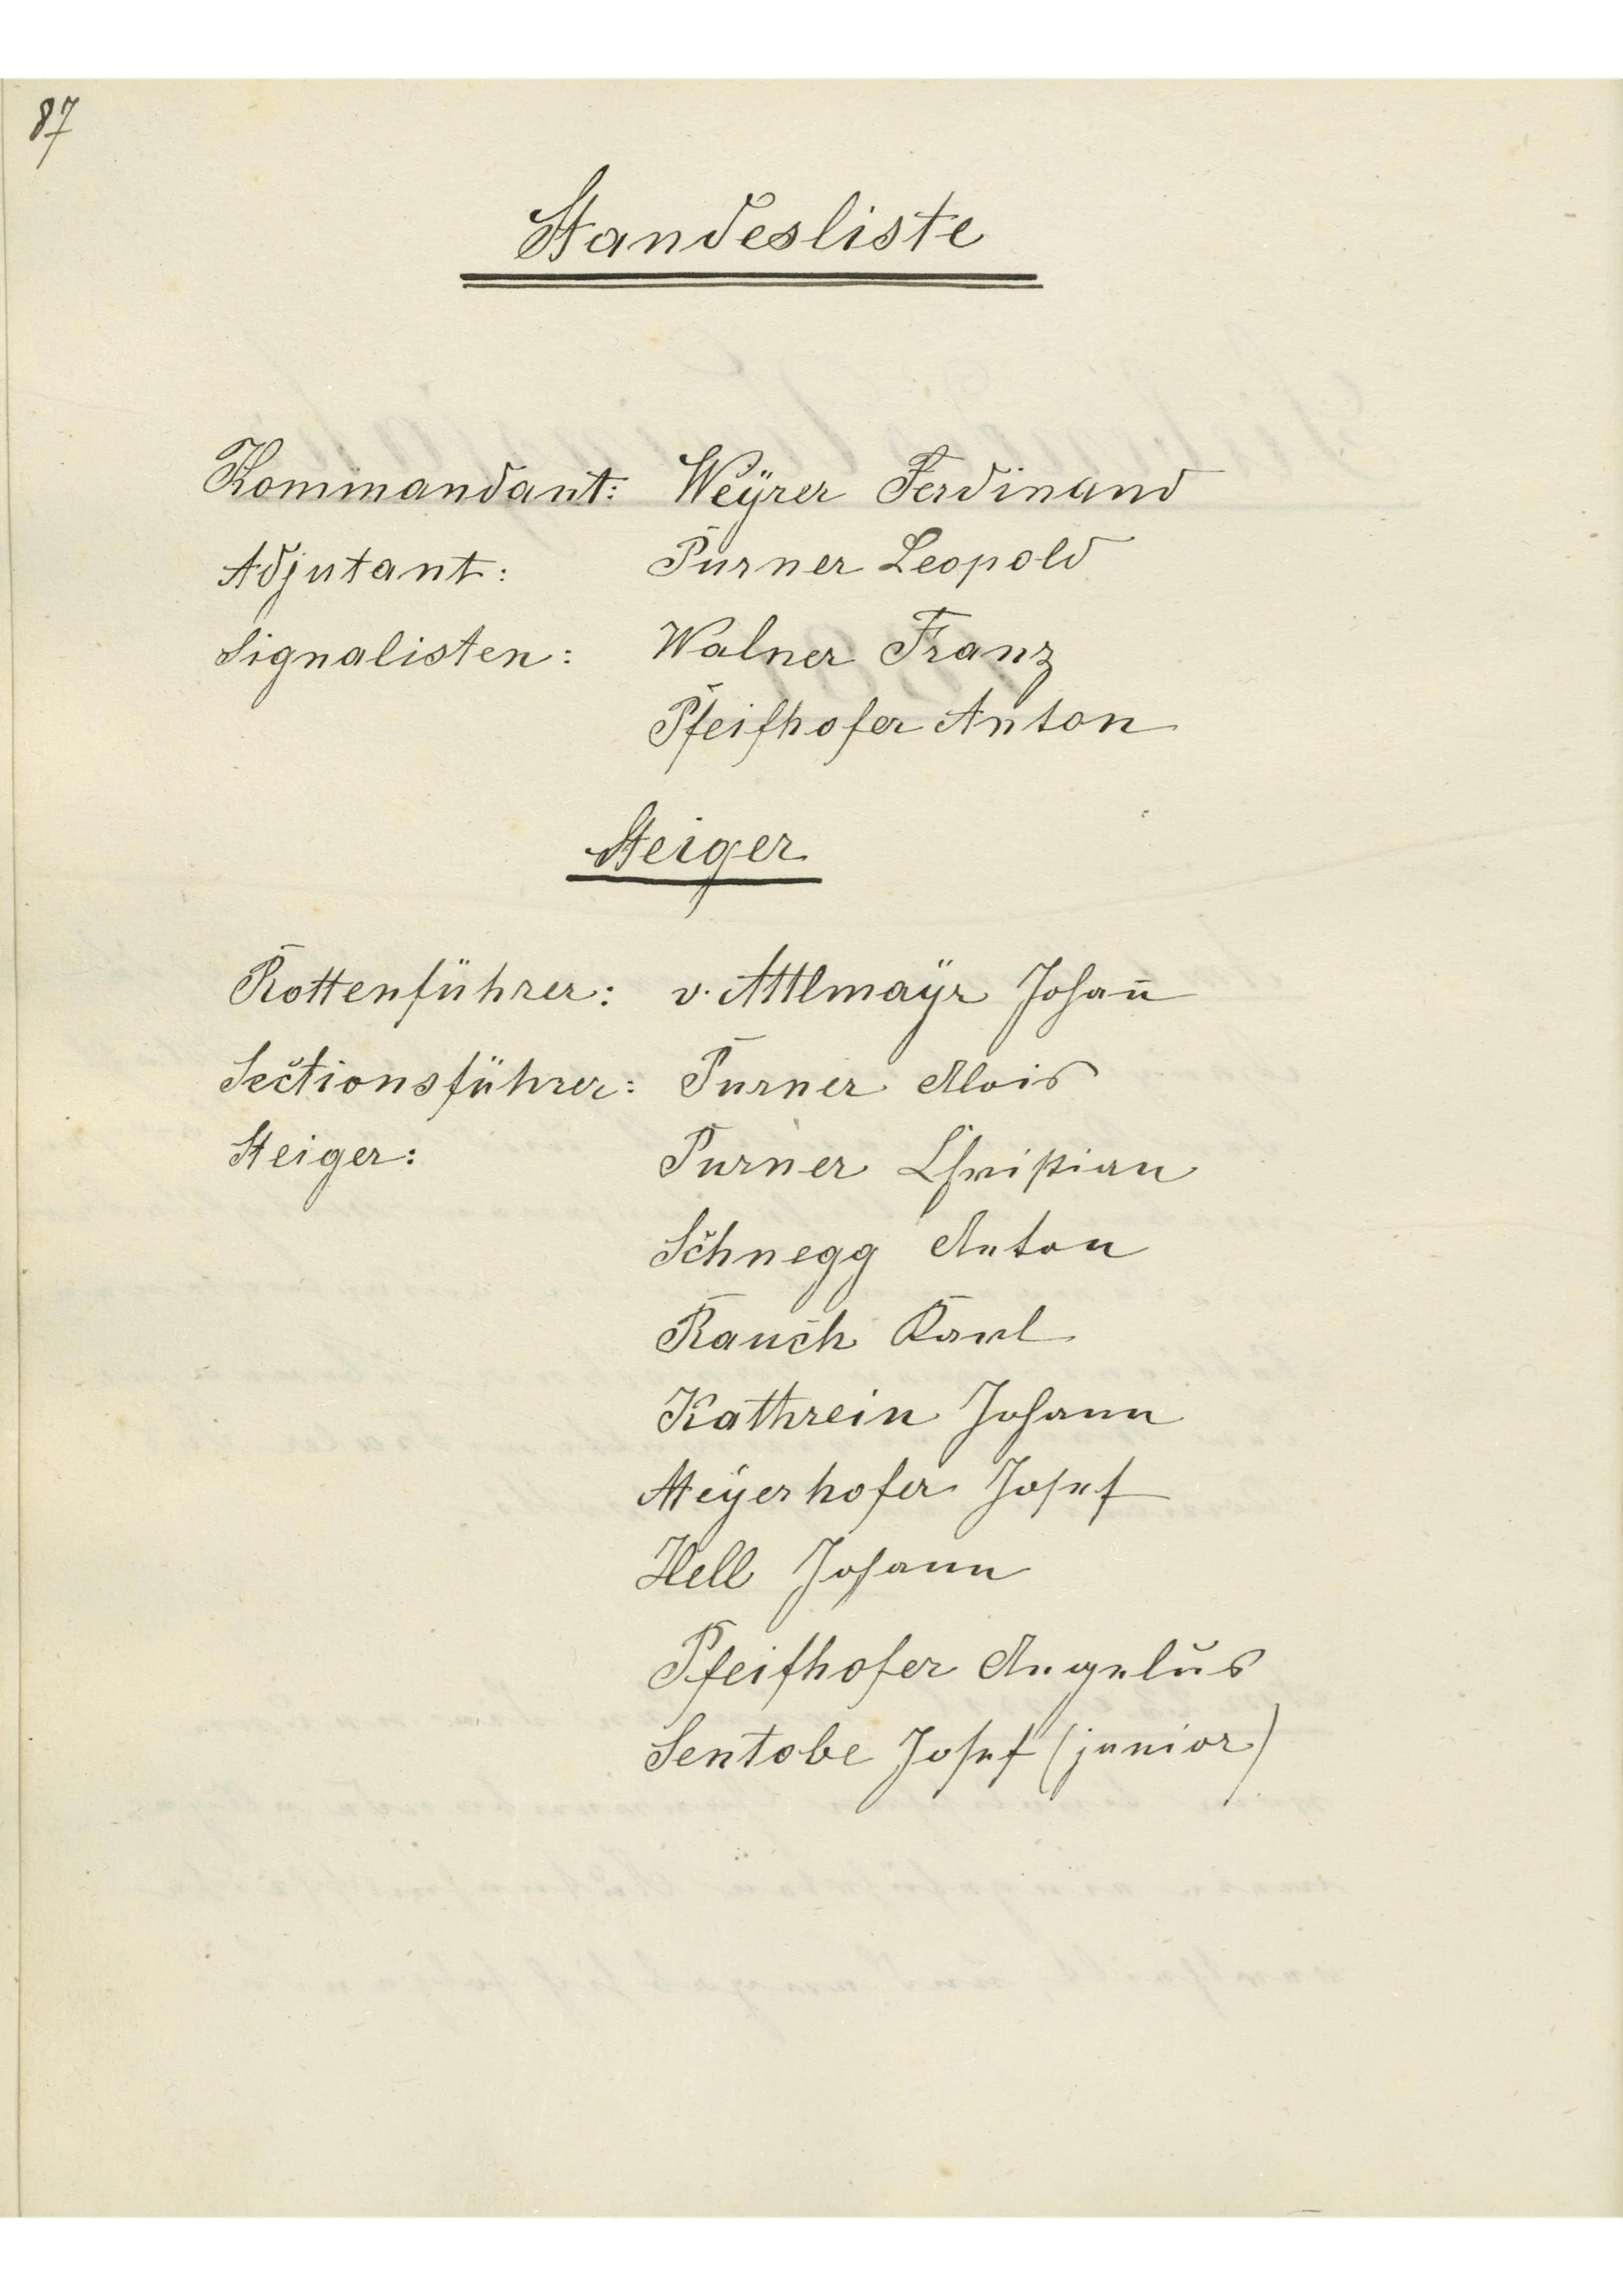 87
Standesliste
Kommandant: Weÿrer Ferdinand
Adjutant: Purner Leopold
Signalisten: Walner Franz
Pfeifhofer Anton
Steiger
Rottenführer: v. Attlmaÿr Johan̄
Sectionsführer: Purner Alois
Steiger: Purner Christian
Schnegg Anton
Rauch Karl
Kathrein Johann
Meÿerhofer Josef
Hell Johann
Pfeifhofer Angelus
Sentobe Josef (junior)